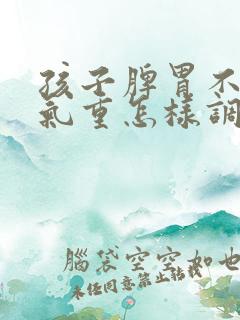 孩子脾胃不
氣重怎樣調
腦袋空空如也
未經同意禁止轉載